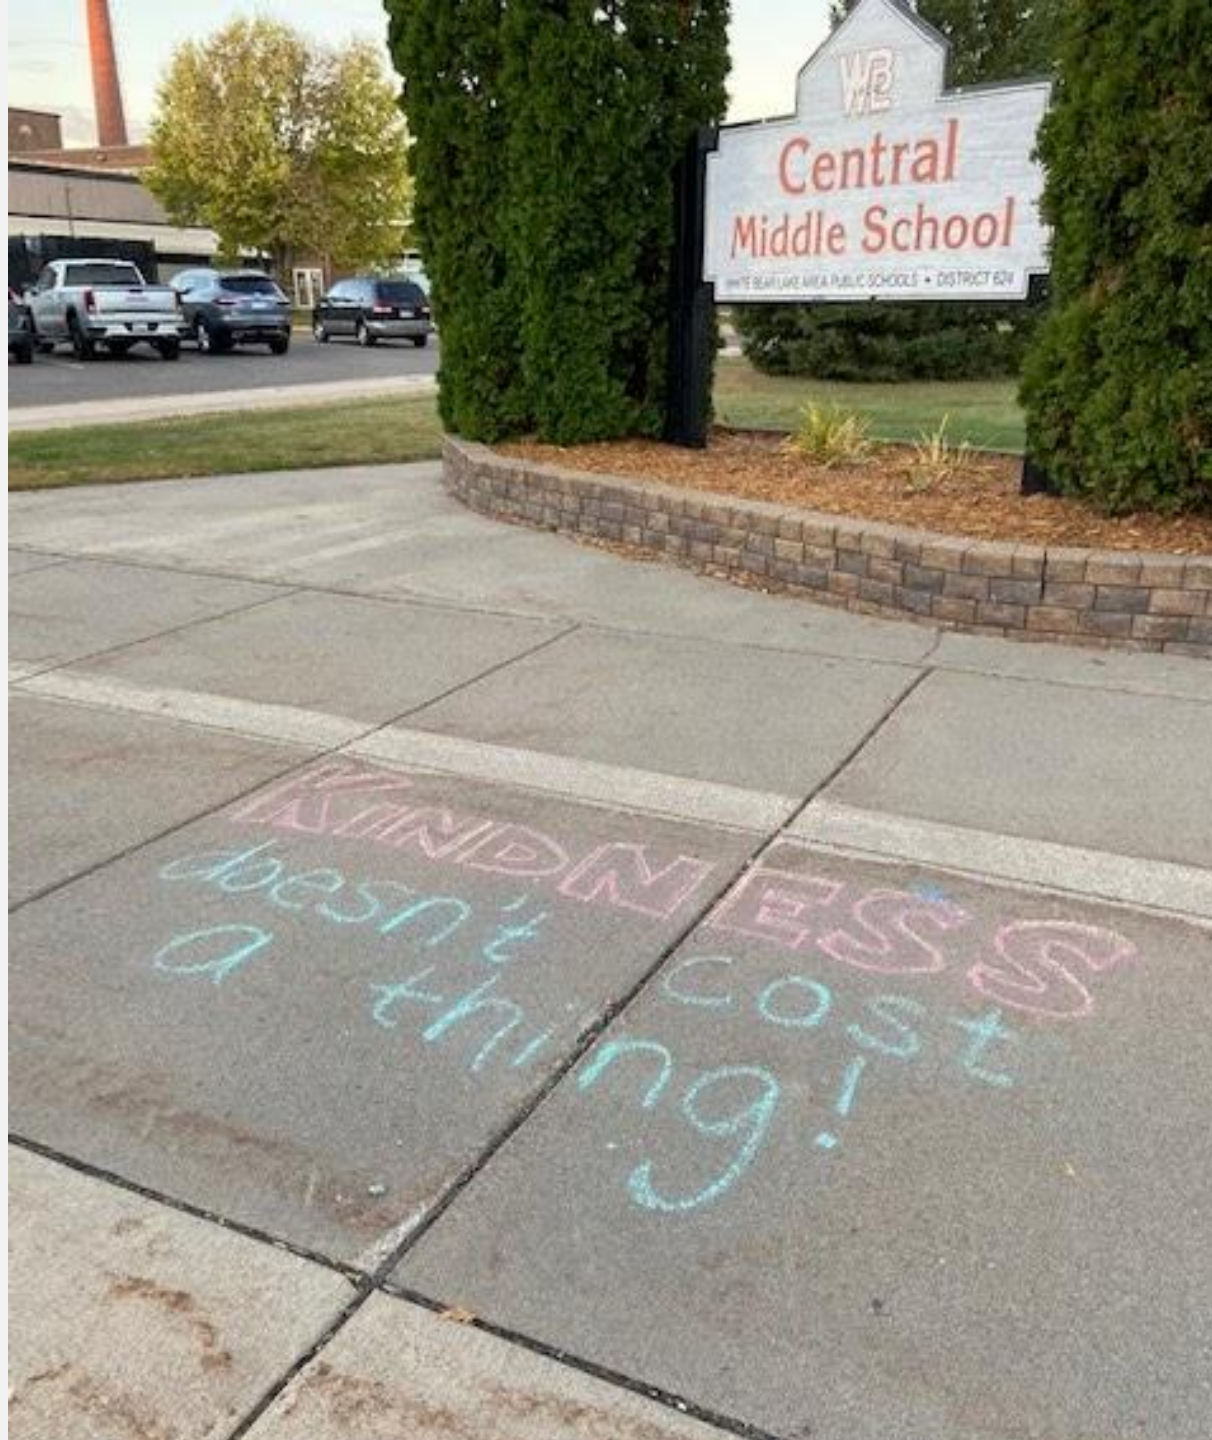 WB
Central
Middle School
WHITE BEAR LAKE AREA PUBLIC SCHOOLS • DISTRICT 624
KINDNESS
doesn't cost
a thing!